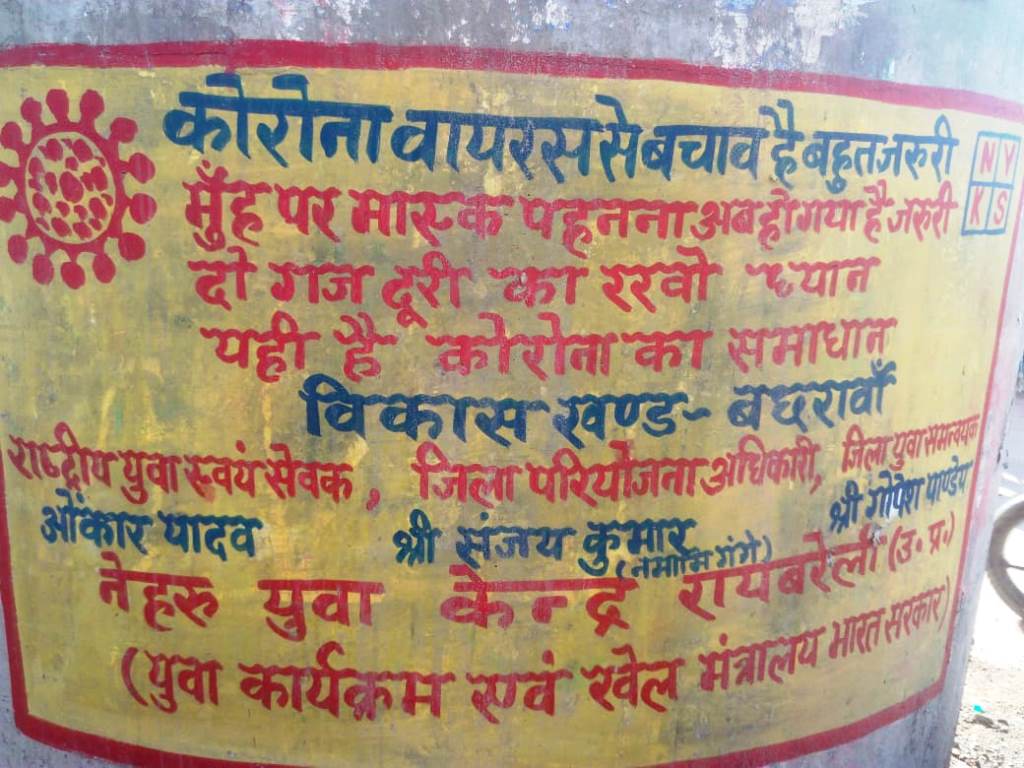 कोरोना वायरस से बचाव है बहुत जरुरी
NY
KS
मुँह पर मास्क पहनना अब हो गया है जरुरी
दो गज दूरी का रखो ध्यान
यही है कोरोना का समाधान
विकास खण्ड - बछरावाँ
राष्ट्रीय युवा स्वयं सेवक, जिला परियोजना अधिकारी, जिला युवा समन्वयक
ओंकार यादव श्री संजय कुमार श्री गोपेश पाण्डेय
(नमामि गंगे)
नेहरु युवा केन्द्र रायबरेली (उ. प्र.)
(युवा कार्यक्रम एवं खेल मंत्रालय भारत सरकार)